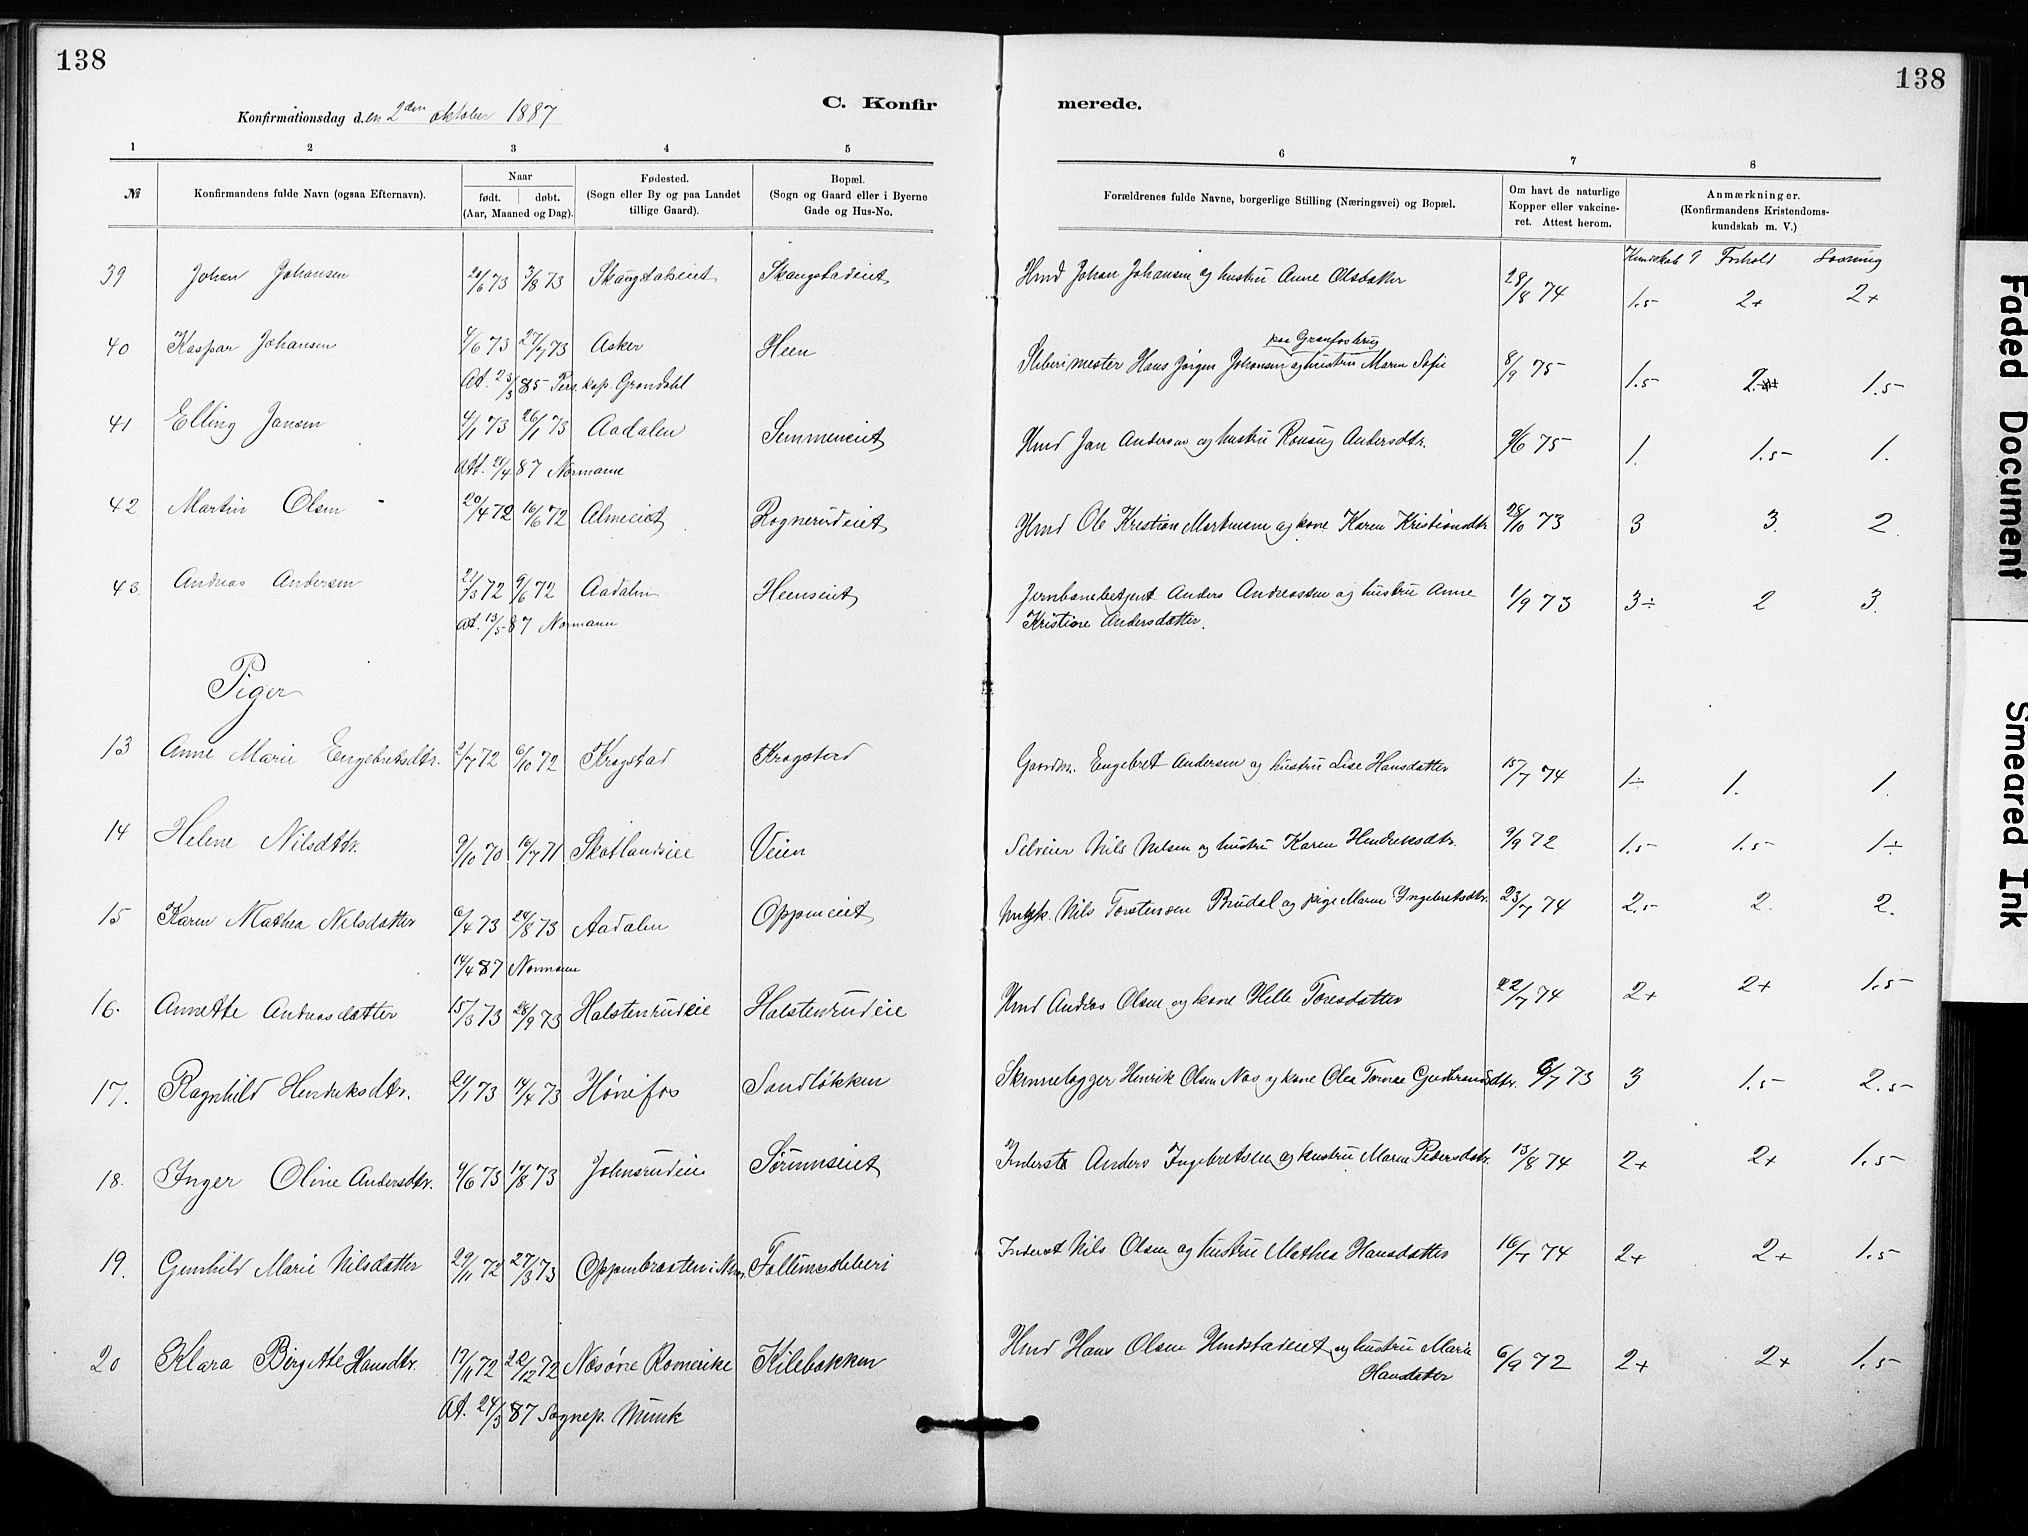 138
138
C. Konfir merede.
Konfirmationsdag den 2den oktober 1887
1 2 3 4 5 6 7 8
№ Konfirmandens fulde Navn (ogsaa Efternavn). Naar født. døbt. (Aar, Maaned og Dag). Fødested. (Sogn eller By og paa Landet tillige Gaard). Bopæl. (Sogn og Gaard eller i Byerne Gade og Hus-No. Forældrenes fulde Navne, borgerlige Stilling (Næringsvei) og Bopæl. Om havt de naturlige Kopper eller vakcineret. Attest herom. Anmærkninger. (Konfirmandens Kristendomskundskab m. V.)
Kundskab Forhold
39 Johan Johansen 20/6 73 3/8 73 Skaugstadeiet Skaugstadeiet Hmd Johan Johansen og hustru Anne Olsdatter 28/8 74 1.5 2+ 2+
paa Granfosbrug
40 Kaspar Johansen 4/6 73 27/7 73 Asker Heen Sliberimester Hans Jørgen Johansen og hustru Maren Sofie 8/9 75 1.5 2 1.5
At. 23/3 85 Pers. kap. Grøndahl
41 Elling Jansen 4/1 73 26/1 73 Aadalen Semmeneiet Hmd Jan Andersen og hustru Andersdtr. 9/6 75 1. 1.5 1.
Att. 21/4 87 Normann
42 Martin Olsen 20/4 72 16/6 72 Almeiet Rognerudeiet Hmd Ole Kristian Martinsen og kone Karen Kristiansdtr 28/10 73 3 3. 2
43. Andreas Andersen 21/3 72 9/6 72 Aadalen Heenseiet Jernbanebetjent Anders Andreassen og hustru Anne 1/9 73 3÷ 2 3.
At. 13/5 87 Normann Kristine Andersdatter.
Piger
13 Anne Marie Engebretsdtr. 2/7 72 6/10 72 Krogstad Krogstad Gaardm. Engebret Andersen og hustru Lise Hansdatter 15/7 74 1÷ 1. 1.
14 Helene Nilsdtr. 9/10 70 16/7 71 Skollandseie Veien Selveier Nils Nilsen og hustru Karen Hendriksdtr. 9/9 72 1.5 1.5 1÷
15 Karen Mathea Nilsdatter 6/4 73 24/8 73 Aadalen Oppeneiet Ungk. Nils Torstensen Brudal og pige Maren Yngebretsdtr. 23/7 74 2.5 2. 2.
14/4 87 Normann
16. Annette Andreasdatter 15/3 73 28/9 73 Halstenrudeie Halstenrudeie Hmd Andreas Olsen og kone Helle Toresdatter 22/7 74 2+ 2+ 1.5
17. Ragnhild Hendriksdtr. 21/1 73 14/4 73 Hønefos Sandløkken Skinnelægger Henrik Olsen Nas og kone Olea Gudbrandsdtr. 6/7 73 3 1.5 2.5
18. Inger Oline Andersdtr. 9/6 73 14/8 73 Johnsrudeie Sørumseiet Inderst Anders Ingebretsen og hustru Maren Pedersdtr. 13/8 74 2+ 2+ 1.5
19. Gunhild Marie Nilsdatter 29/11 72 27/3 73 Oppenbraaten i Follumsliberi Inderst Nils Olsen og hustru Mathea Hansdatter 16/7 74 2+ 2+ 1.5
20 Klara Birgitte Hansdtr. 17/11 72 22/12 72 Romerike Kilebakken Hmd Hans Olsen og hustru Marie 6/9 72 2+ 2+ 1.5
Hansdatter
At. 24/3 87 Sognep. Munk
Faded Document
Smeared Ink